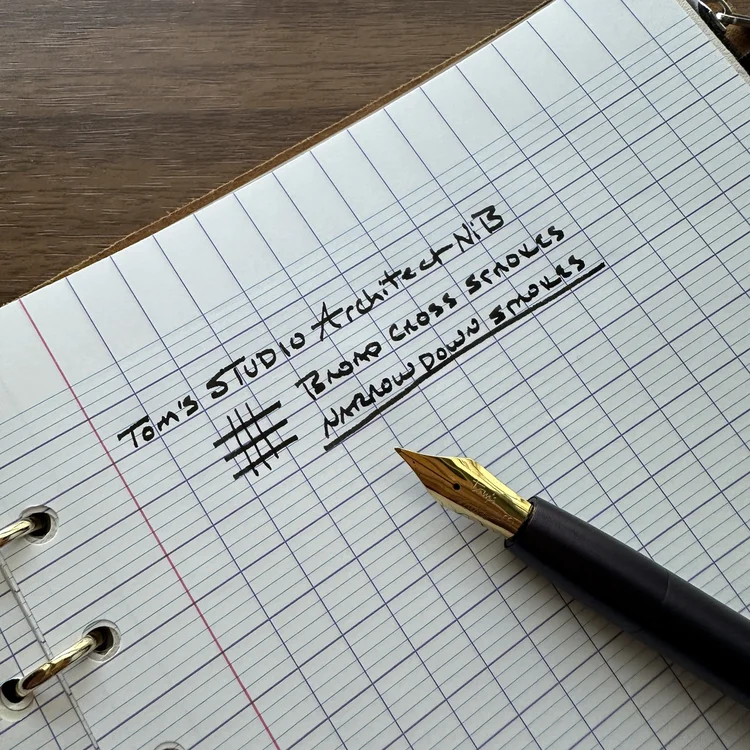 Tom's STUDIO Architect NIB
BROAD CROSS STROKES
NARROW DOWN STROKES
Tom's